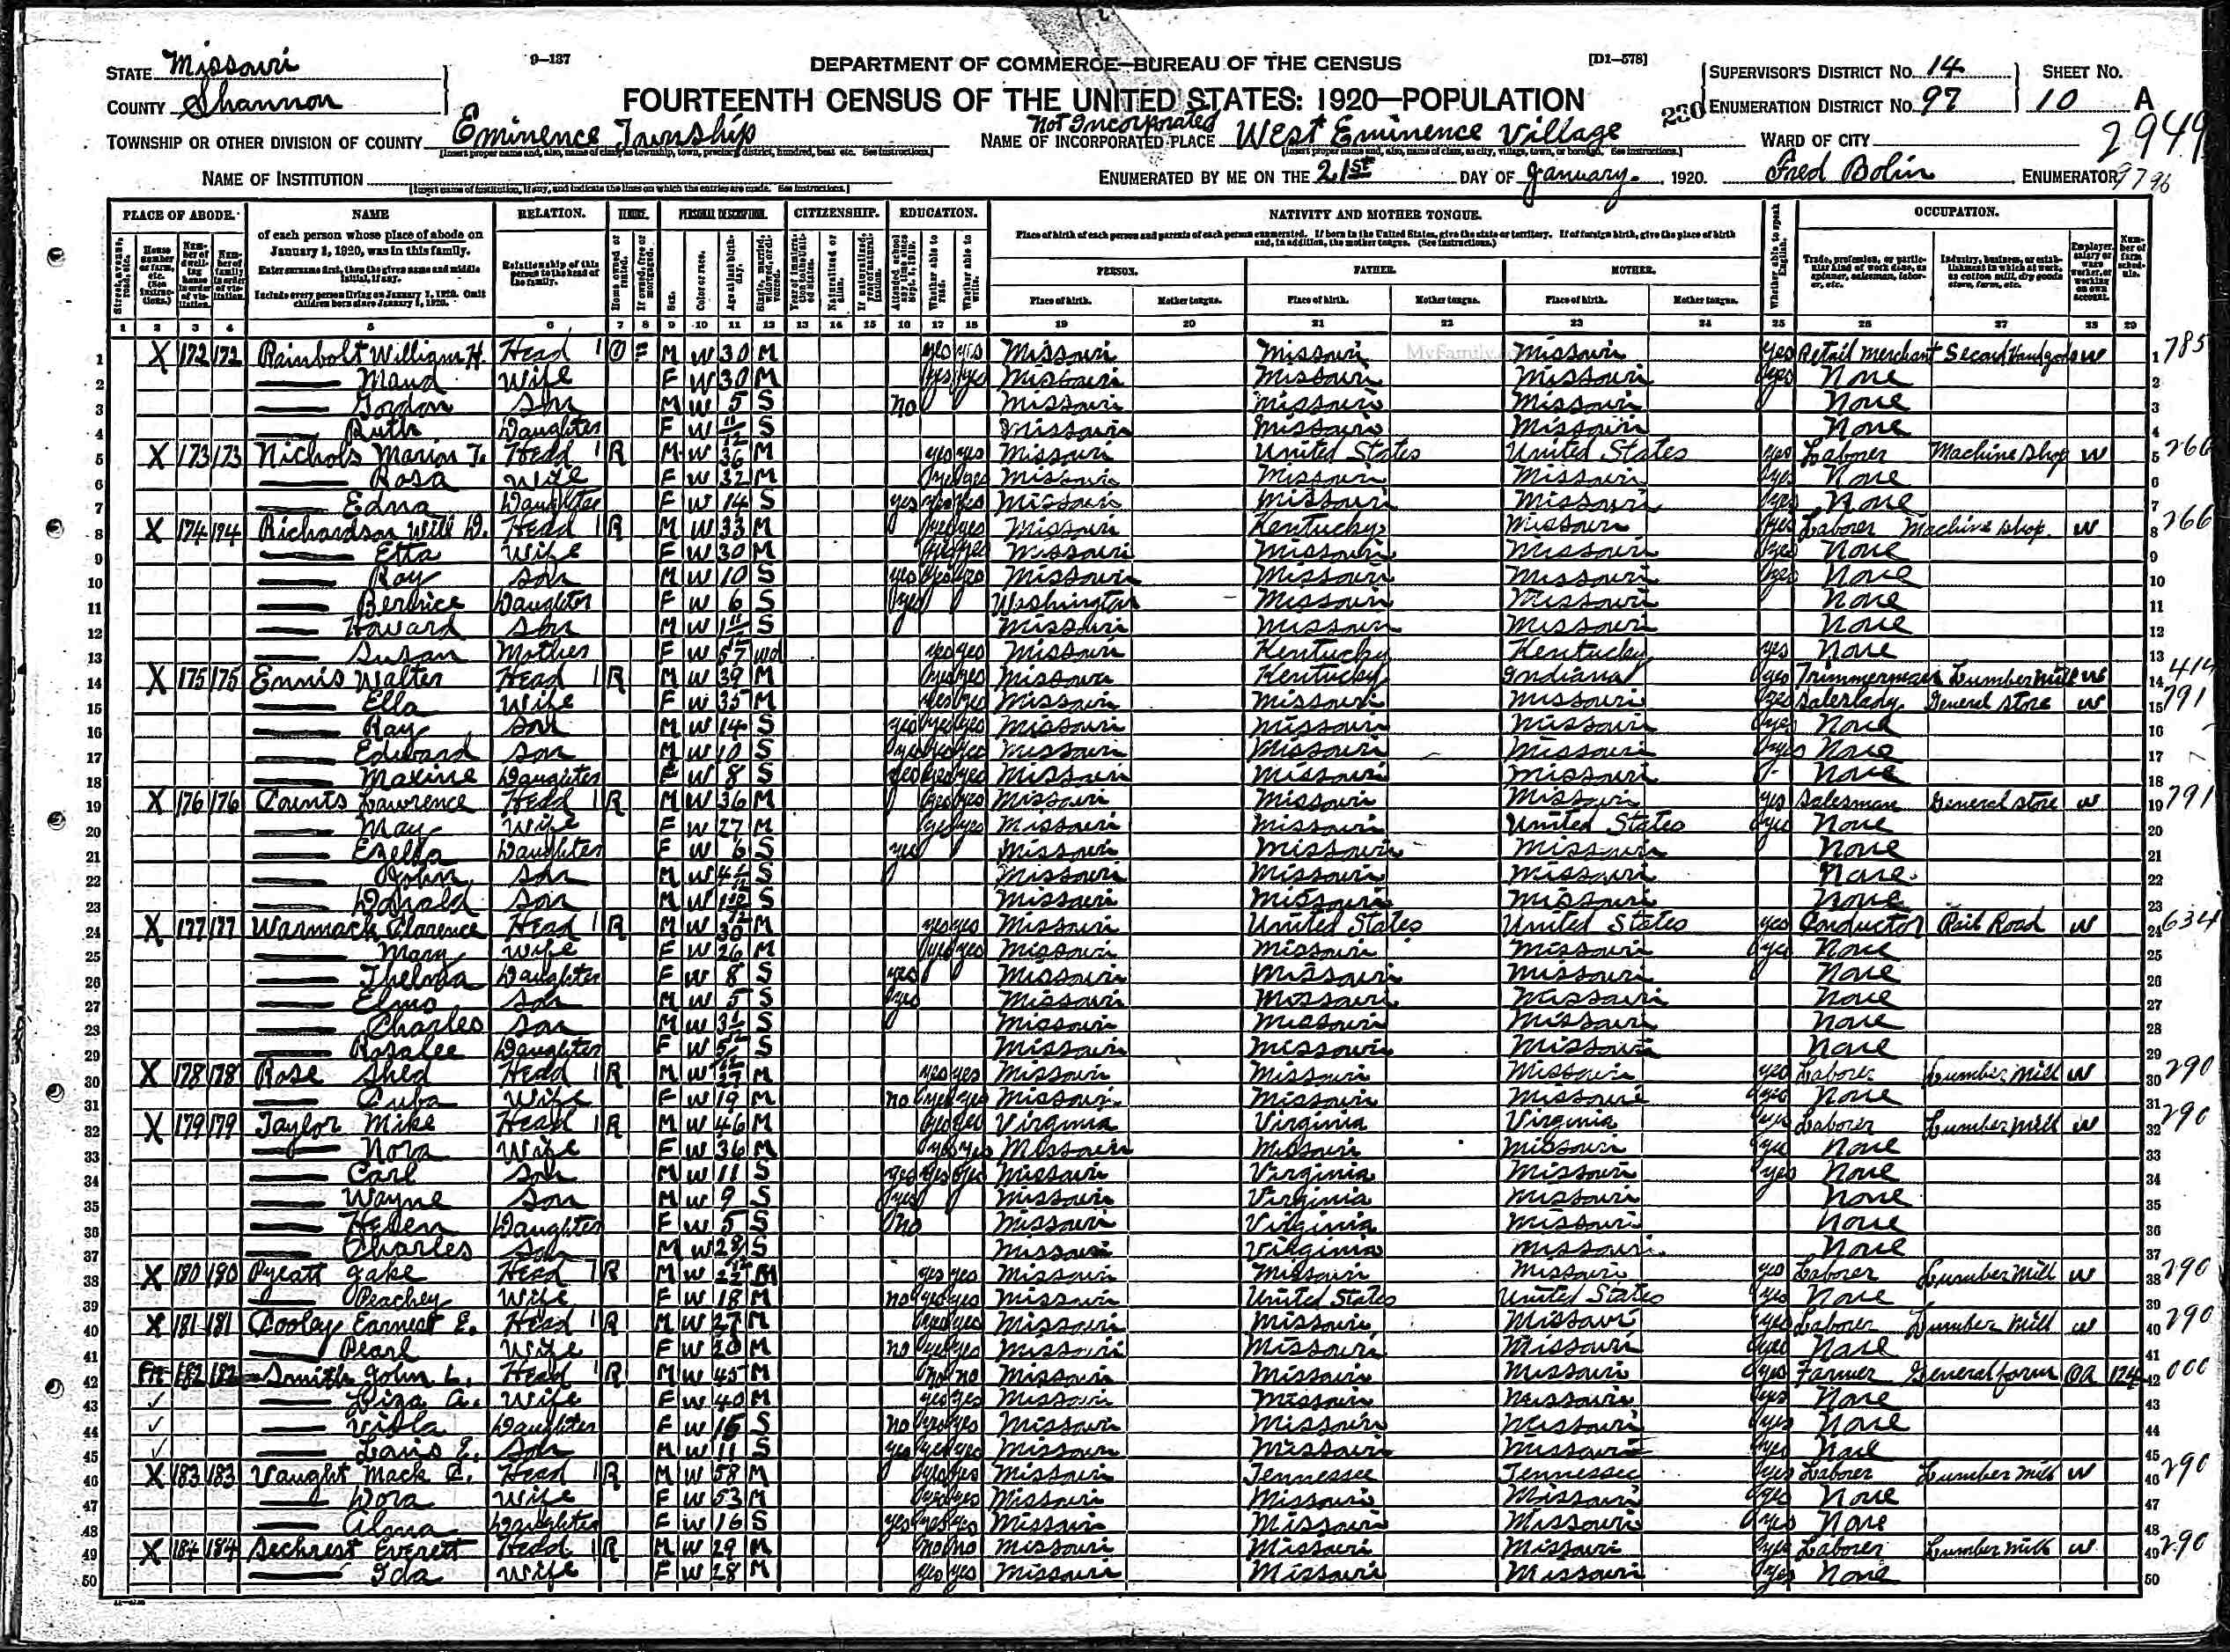 STATE Missouri
COUNTY Shannon
9—137
DEPARTMENT OF COMMERCE—BUREAU OF THE CENSUS
[D1—578]
FOURTEENTH CENSUS OF THE UNITED STATES: 1920—POPULATION
SUPERVISOR'S DISTRICT No. 14 SHEET No.
ENUMERATION DISTRICT No. 97 10 A
230
2949
TOWNSHIP OR OTHER DIVISION OF COUNTY Eminence Township
Not Incorporated
NAME OF INCORPORATED PLACE West Eminence Village
WARD OF CITY
NAME OF INSTITUTION
ENUMERATED BY ME ON THE 21st DAY OF January, 1920. Fred Bolin, ENUMERATOR
9796
PLACE OF ABODE. NAME RELATION. TENURE. PERSONAL DESCRIPTION. CITIZENSHIP. EDUCATION. NATIVITY AND MOTHER TONGUE. OCCUPATION.
of each person whose place of abode on January 1, 1920, was in this family.
Enter surname first, then the given name and middle initial, if any.
Include every person living on January 1, 1920. Omit children born since January 1, 1920.
Relationship of this person to the head of the family.
Place of birth of each person and parents of each person enumerated. If born in the United States, give the state or territory. If of foreign birth, give the place of birth and, in addition, the mother tongue. (See Instructions.)
PERSON. FATHER. MOTHER.
Place of birth. Mother tongue. Place of birth. Mother tongue. Place of birth. Mother tongue.
1 2 3 4 5 6 7 8 9 10 11 12 13 14 15 16 17 18 19 20 21 22 23 24 25 26 27 28 29
1 X 172 172 Rainbolt William H. Head 1 O M W 30 M yes yes Missouri Missouri Missouri yes Retail merchant Second Hand goods W 1 785
2 Maud Wife F W 30 M yes yes Missouri Missouri Missouri yes None 2
3 Gordon Son M W 5 S no Missouri Missouri Missouri None 3
4 Ruth Daughter F W 11/12 S Missouri Missouri Missouri None 4
5 X 173 173 Nichols Marion T. Head 1 R M W 36 M yes yes Missouri United States United States yes Laborer Machine Shop W 5 266
6 Rosa Wife F W 32 M yes yes Missouri Missouri Missouri yes None 6
7 Edna Daughter F W 14 S yes yes yes Missouri Missouri Missouri yes None 7
8 X 174 174 Richardson Will D. Head 1 R M W 33 M yes yes Missouri Kentucky Missouri yes Laborer Machine Shop W 8 266
9 Etta Wife F W 30 M yes yes Missouri Missouri Missouri yes None 9
10 Roy Son M W 10 S yes yes yes Missouri Missouri Missouri yes None 10
11 Bernice Daughter F W 6 S yes Washington Missouri Missouri None 11
12 Howard Son M W S Missouri Missouri Missouri None 12
13 Susan Mother F W 57 wd yes yes Missouri Kentucky Kentucky yes None 13
14 X 175 175 Ennis Walter Head 1 R M W 39 M yes yes Missouri Kentucky Indiana yes Trimmerman Lumber Mill W 14 414
15 Ella Wife F W 35 M yes yes Missouri Missouri Missouri yes Saleslady General Store W 15 791
16 Ray Son M W 14 S yes yes yes Missouri Missouri Missouri yes None 16
17 Edward Son M W 10 S yes yes yes Missouri Missouri Missouri yes None 17
18 Maxine Daughter F W 8 S yes yes yes Missouri Missouri Missouri None 18
19 X 176 176 Counts Lawrence Head 1 R M W 36 M yes yes Missouri Missouri Missouri yes Salesman General Store W 19 791
20 May Wife F W 27 M yes yes Missouri Missouri United States yes None 20
21 Ezella Daughter F W 6 S yes Missouri Missouri Missouri None 21
22 John Son M W S Missouri Missouri Missouri None 22
23 Donald Son M W S Missouri Missouri Missouri None 23
24 X 177 177 Warmack Clarence Head 1 R M W 30 M yes yes Missouri United States United States yes Conductor Rail Road W 24 634
25 Mary Wife F W 26 M yes yes Missouri Missouri Missouri yes None 25
26 Thelma Daughter F W 8 S yes Missouri Missouri Missouri None 26
27 Elmo Son M W 5 S yes Missouri Missouri Missouri None 27
28 Charles Son M W S Missouri Missouri Missouri None 28
29 Rosalee Daughter F W S Missouri Missouri Missouri None 29
30 X 178 178 Rose Shed Head 1 R M W 27 M yes yes Missouri Missouri Missouri yes Laborer Lumber Mill W 30 290
31 Cuba Wife F W 19 M no yes yes Missouri Missouri Missouri yes None 31
32 X 179 179 Taylor Mike Head 1 R M W 46 M yes yes Virginia Virginia Virginia yes Laborer Lumber Mill W 32 290
33 Nora Wife F W 36 M yes yes Missouri Missouri Missouri yes None 33
34 Carl Son M W 11 S yes yes yes Missouri Virginia Missouri yes None 34
35 Wayne Son M W 9 S yes Missouri Virginia Missouri None 35
36 Helen Daughter F W 5 S no Missouri Virginia Missouri None 36
37 Charles Son M W S Missouri Virginia Missouri None 37
38 X 180 180 Pyeatt Jake Head 1 R M W 22 M yes yes Missouri Missouri Missouri yes Laborer Lumber Mill W 38 290
39 Peachey Wife F W 18 M no yes yes Missouri United States United States yes None 39
40 X 181 181 Cooley Earnest E. Head 1 R M W 27 M yes yes Missouri Missouri Missouri yes Laborer Lumber Mill W 40 290
41 Pearl Wife F W 20 M no yes yes Missouri Missouri Missouri yes None 41
42 Fm 182 182 Smith John L. Head 1 R M W 45 M no no Missouri Missouri Missouri yes Farmer General farm OA 124 42 000
43 Liza A. Wife F W 40 M yes yes Missouri Missouri Missouri yes None 43
44 Viola Daughter F W 15 S no yes yes Missouri Missouri Missouri yes None 44
45 Son M W 11 S yes yes yes Missouri Missouri Missouri yes None 45
46 X 183 183 Vaught Mack C. Head 1 R M W 58 M yes yes Missouri Tennessee Tennessee yes Laborer Lumber Mill W 46 290
47 Dora Wife F W 53 M yes yes Missouri Missouri Missouri yes None 47
48 Alma Daughter F W 16 S yes yes yes Missouri Missouri Missouri yes None 48
49 X 184 184 Sechrest Everett Head 1 R M W 29 M no no Missouri Missouri Missouri yes Laborer Lumber Mill W 49 290
50 Ida Wife F W 28 M yes yes Missouri Missouri Missouri yes None 50